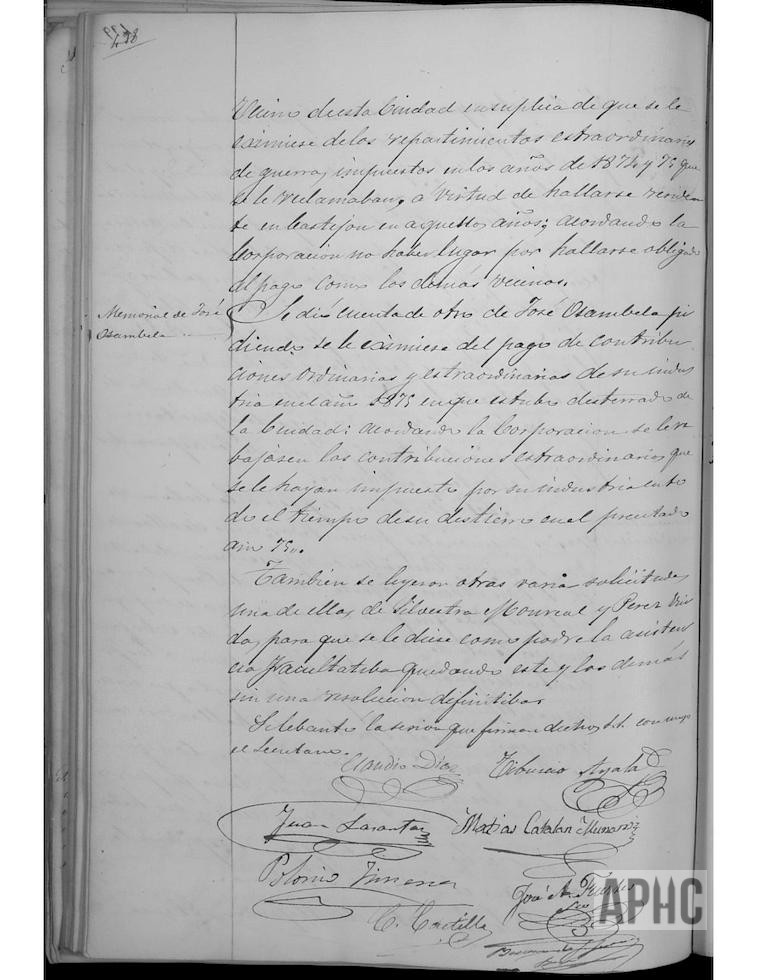 Vecino de esta Ciudad en suplica de que se le
eximiese de los repartimientos estraordinarios
de guerra, impuestos en los años de 1874 y 75 que
se le reclamaban, á virtud de hallarse residen
te en Castejon en aquellos años; acordando la
Corporacion no haber lugar por hallarse obligado
al pago como los demás vecinos.
Memorial de José
Osambela
Se dió cuenta de otro de José Osambela pi
diendo se le eximiese del pago de contribu
ciones ordinarias y estraordinarias de su indus
tria en el año 1875 en que estubo desterrado de
la Ciudad: acordando la Corporacion se le re
bajasen las contribuciones estraordinarias que
se le hayan impuesto por su industria en to
do el tiempo de su destierro en el precitado
año 75.
Tambien se leyeron otras varias solicitudes
una de ellas de Silvestra Monreal y Perez Viu
da, para que se le diese como pobre la asisten
cia facultatiba quedando este y los demás
sin una resolucion difinitiba
Se lebantó la sesion que firman dichos S.S. con migo
el Secretario.
Claudio Diaz
Tiburcio Ayala
Juan
Matias Catalan
Polonio Jimenez
José
C. Castilla
APHC